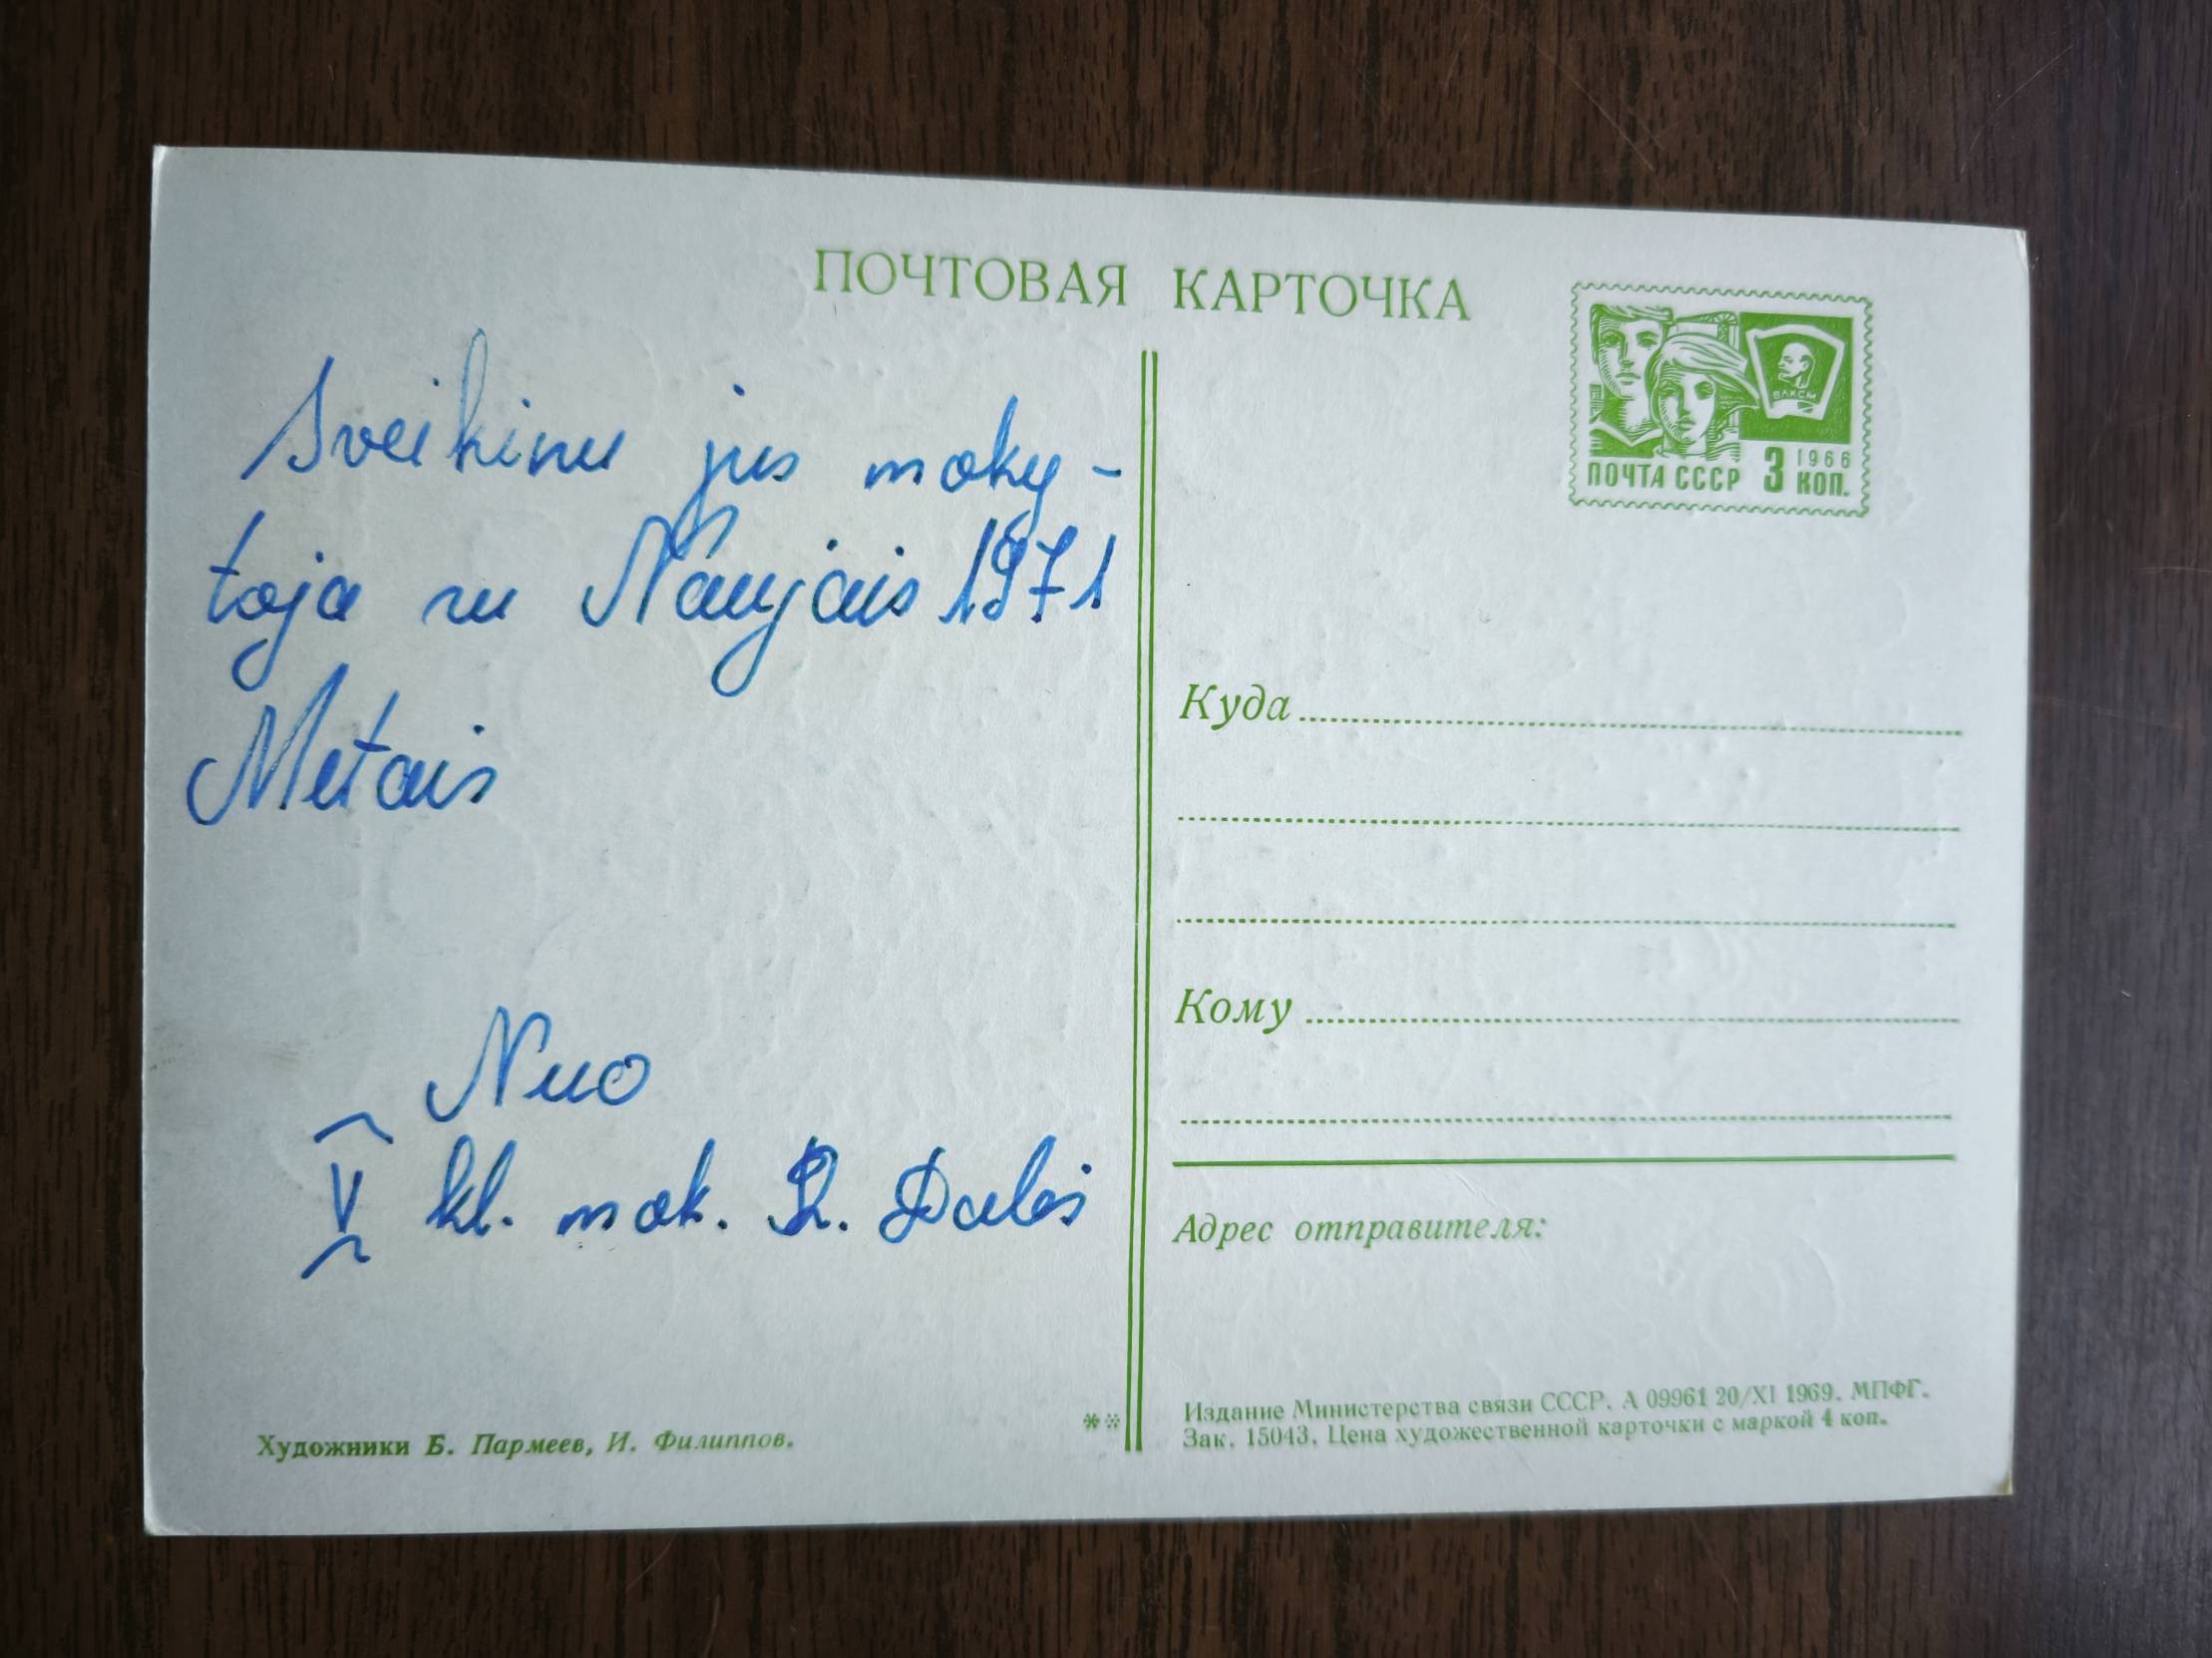 ПОЧТОВАЯ КАРТОЧКА
ВЛКСМ
1966
ПОЧТА СССР 3 КОП.
Sveikinu jus moky-
toja su Naujais 1971
Metais
Nuo
V kl. mok. R.
Куда
Кому
Адрес отправителя:
Художники Б. Пармеев, И. Филиппов.
**
Издание Министерства связи СССР. А 09961 20/XI 1969. МПФГ.
Зак. 15043. Цена художественной карточки с маркой 4 коп.